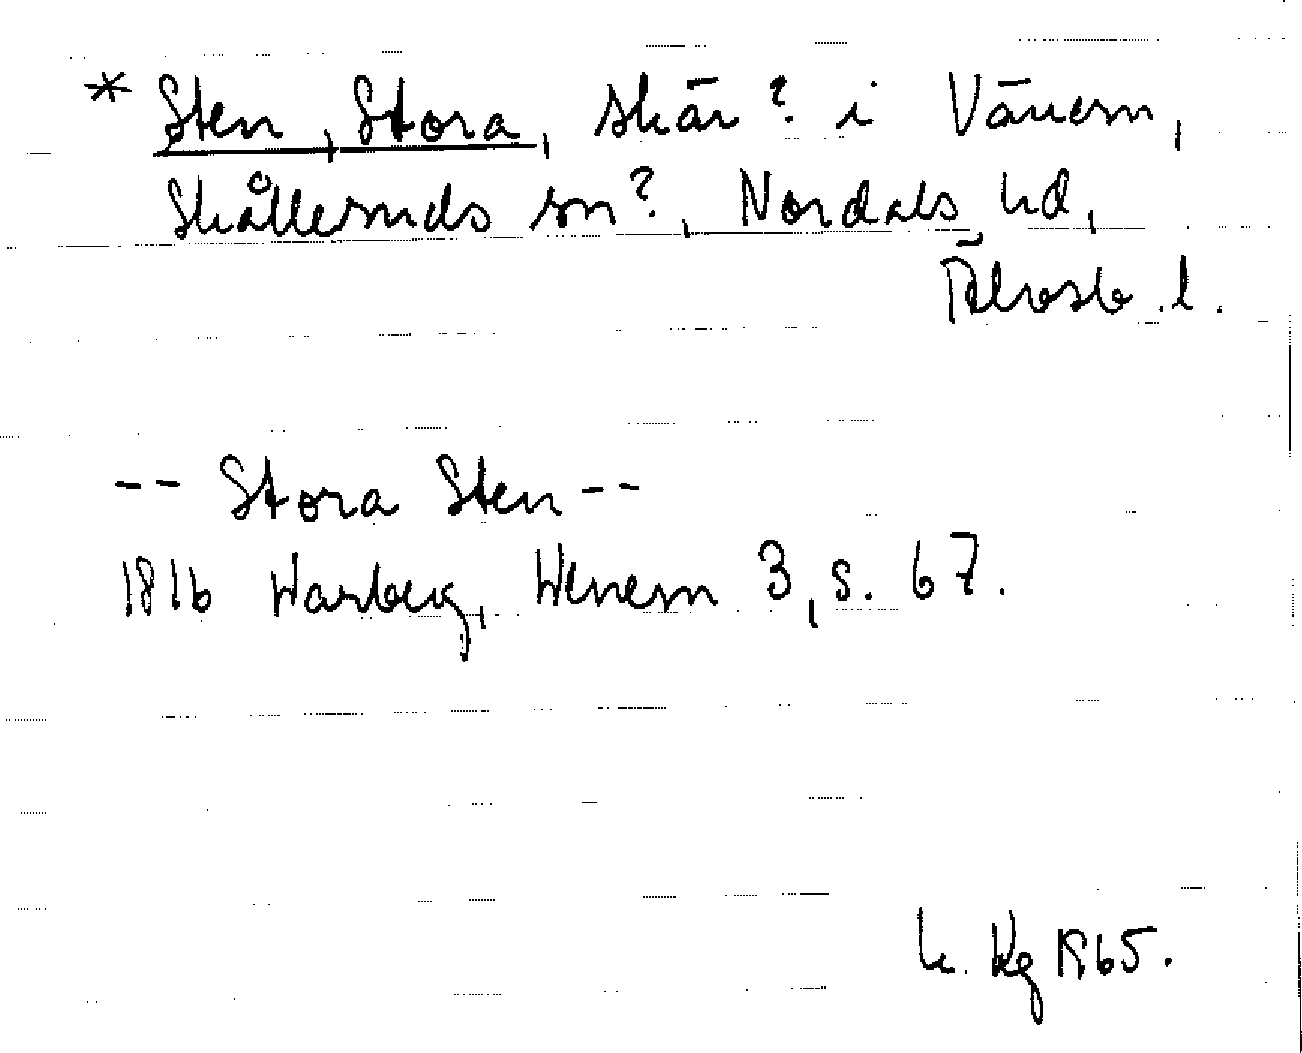 * Sten, Stora, skär? i Vänern,
Skålleruds sn?, Nordals hd,
Älvsb. l.
-- Stora Sten --
1816 Warberg, Wenern 3, s. 67.
Kg 1965.